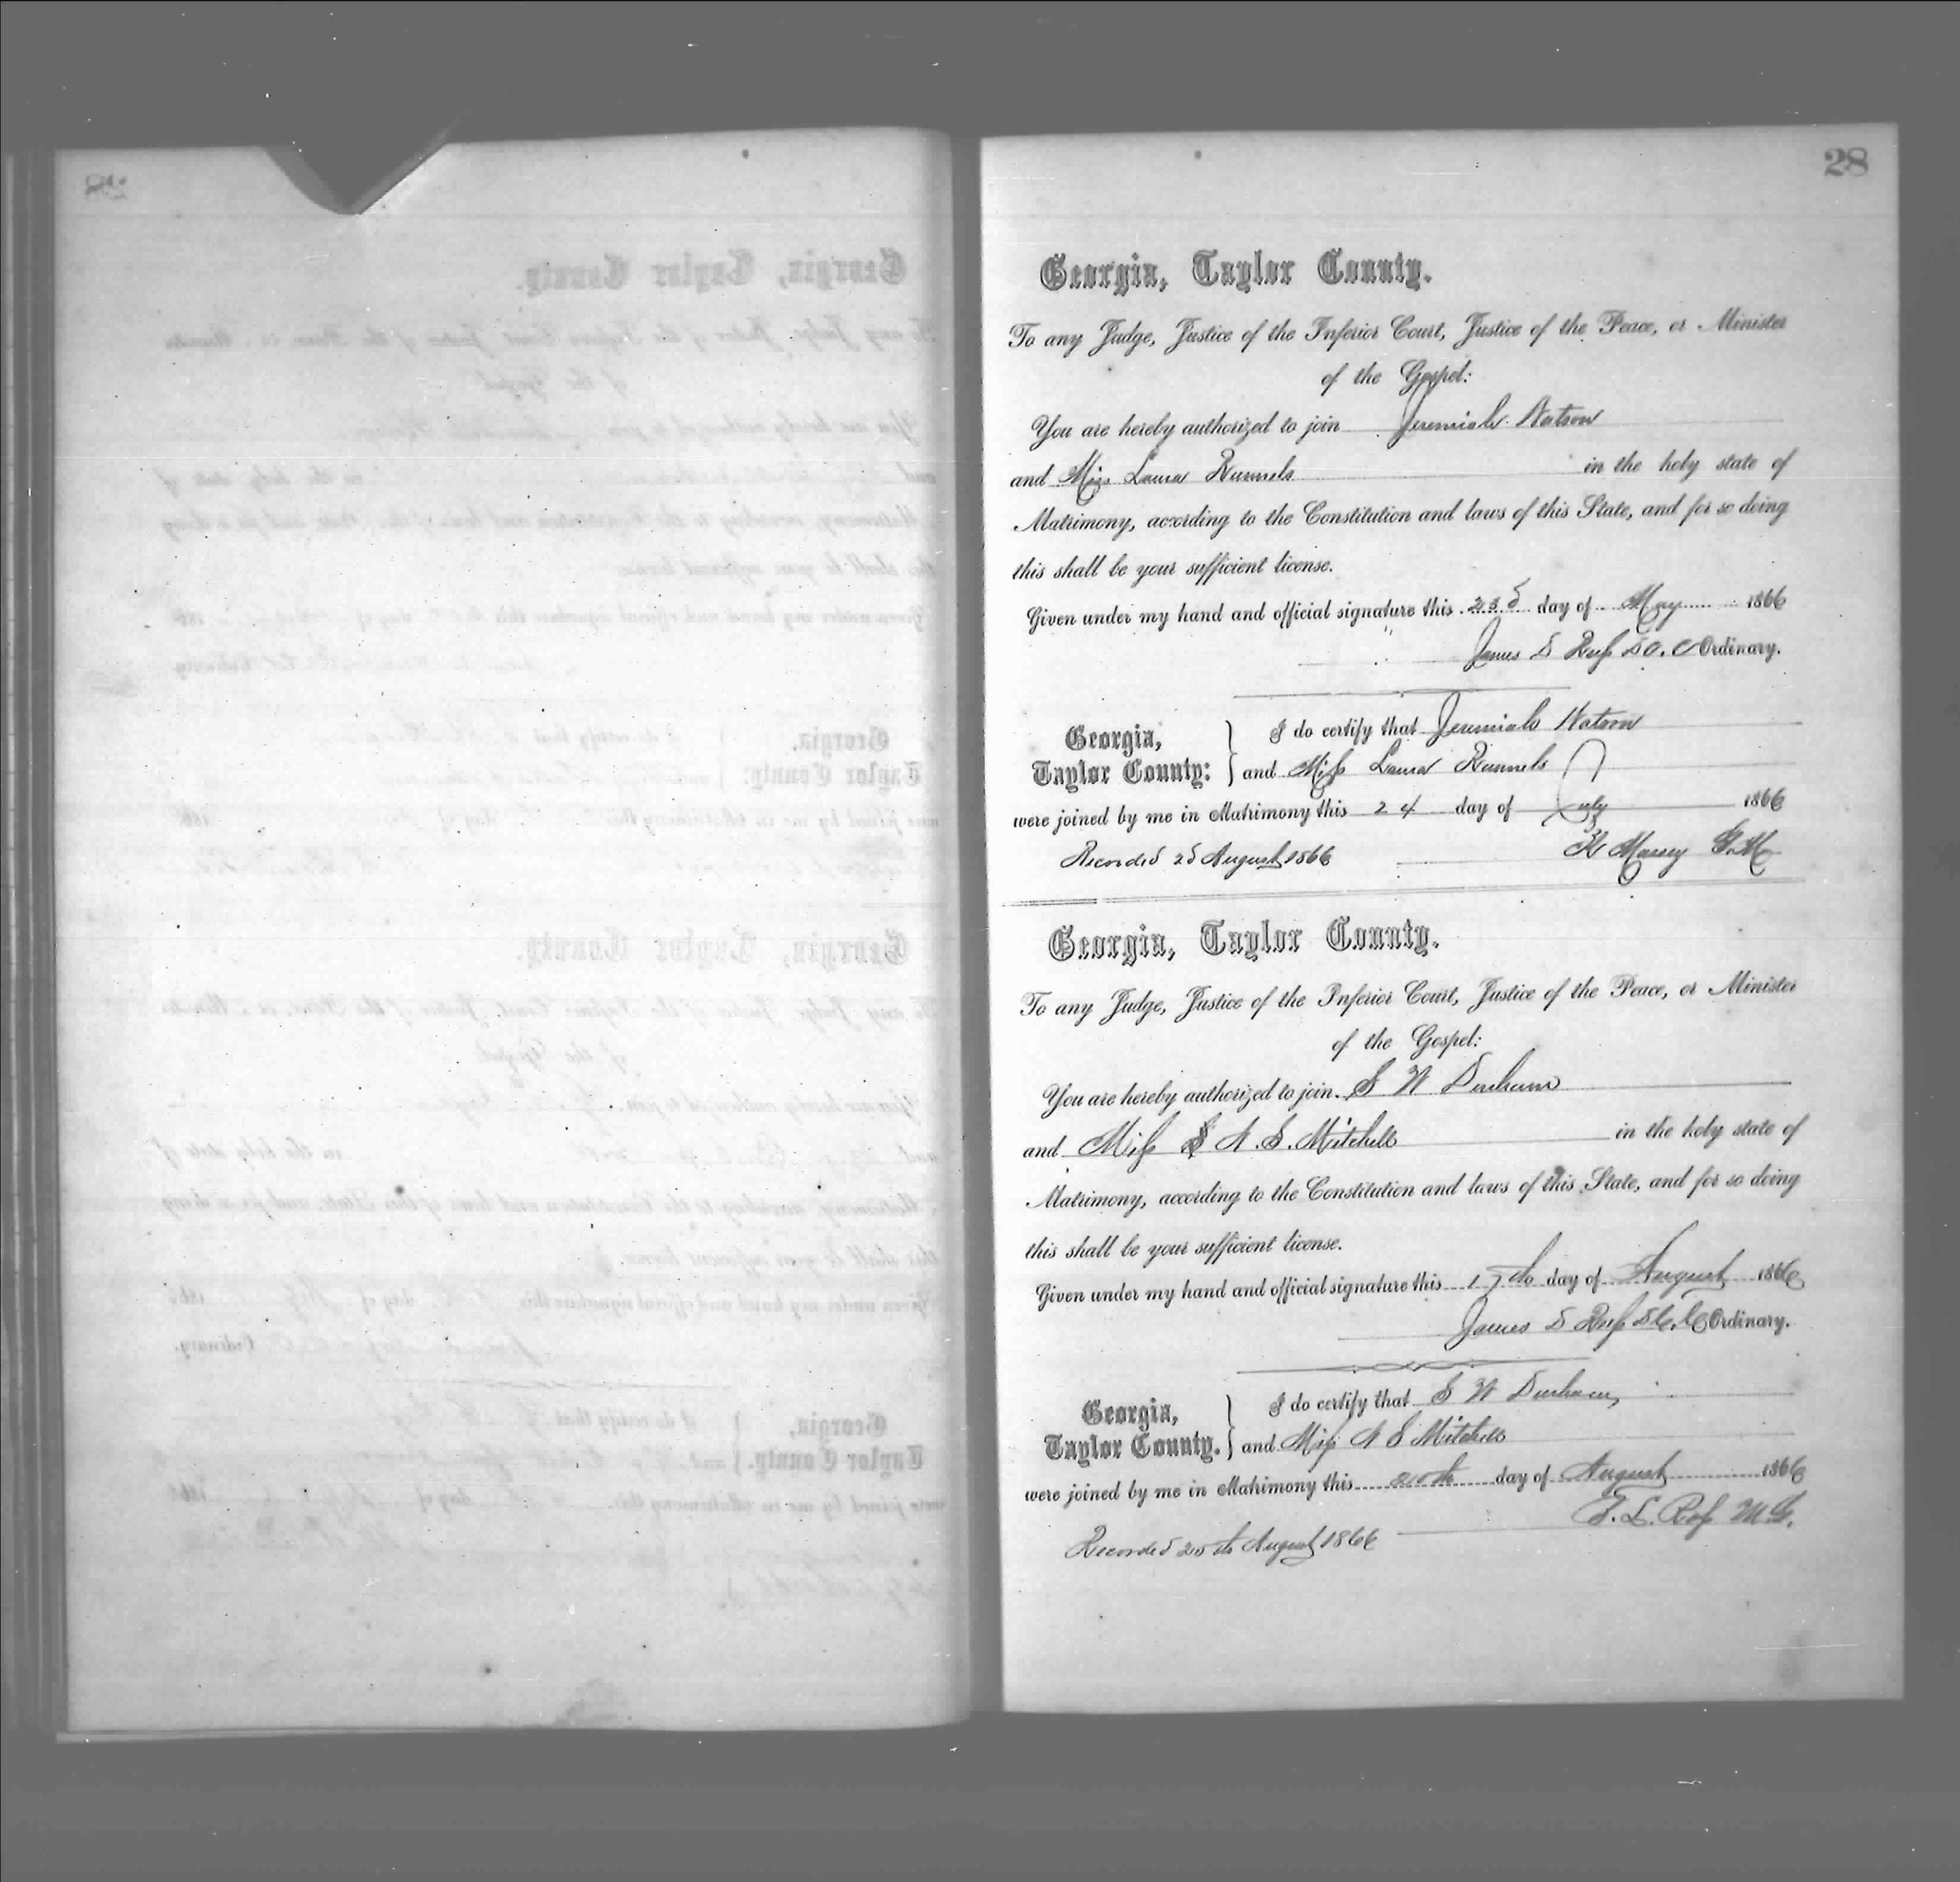 28
Georgia, Taylor County.
To any Judge, Justice of the Inferior Court, Justice of the Peace, or Minister
of the Gospel:
You are hereby authorized to join Jeremiah Watson
and Miss Laura Runnels in the holy state of
Matrimony, according to the Constitution and laws of this State, and for so doing
this shall be your sufficient license.
Given under my hand and official signature this 23d day of May 1866
James D Russ D.C.C Ordinary.
Georgia,
Taylor County: } I do certify that Jeremiah Watson
and Miss Laura Runnels
were joined by me in Matrimony this 24 day of July 1866
Recorded 2d August 1866 Massey G.M
Georgia, Taylor County.
To any Judge, Justice of the Inferior Court, Justice of the Peace, or Minister
of the Gospel:
You are hereby authorized to join S W Durham
and Miss A. S. Mitchell in the holy state of
Matrimony, according to the Constitution and laws of this State, and for so doing
this shall be your sufficient license.
Given under my hand and official signature this 17th day of August 1866
James D Russ D.C.C Ordinary.
Georgia,
Taylor County. } I do certify that S W Durham
and Miss A S Mitchell
were joined by me in Matrimony this 20th day of August 1866
Ross M.G.
Recorded 20th August 1866